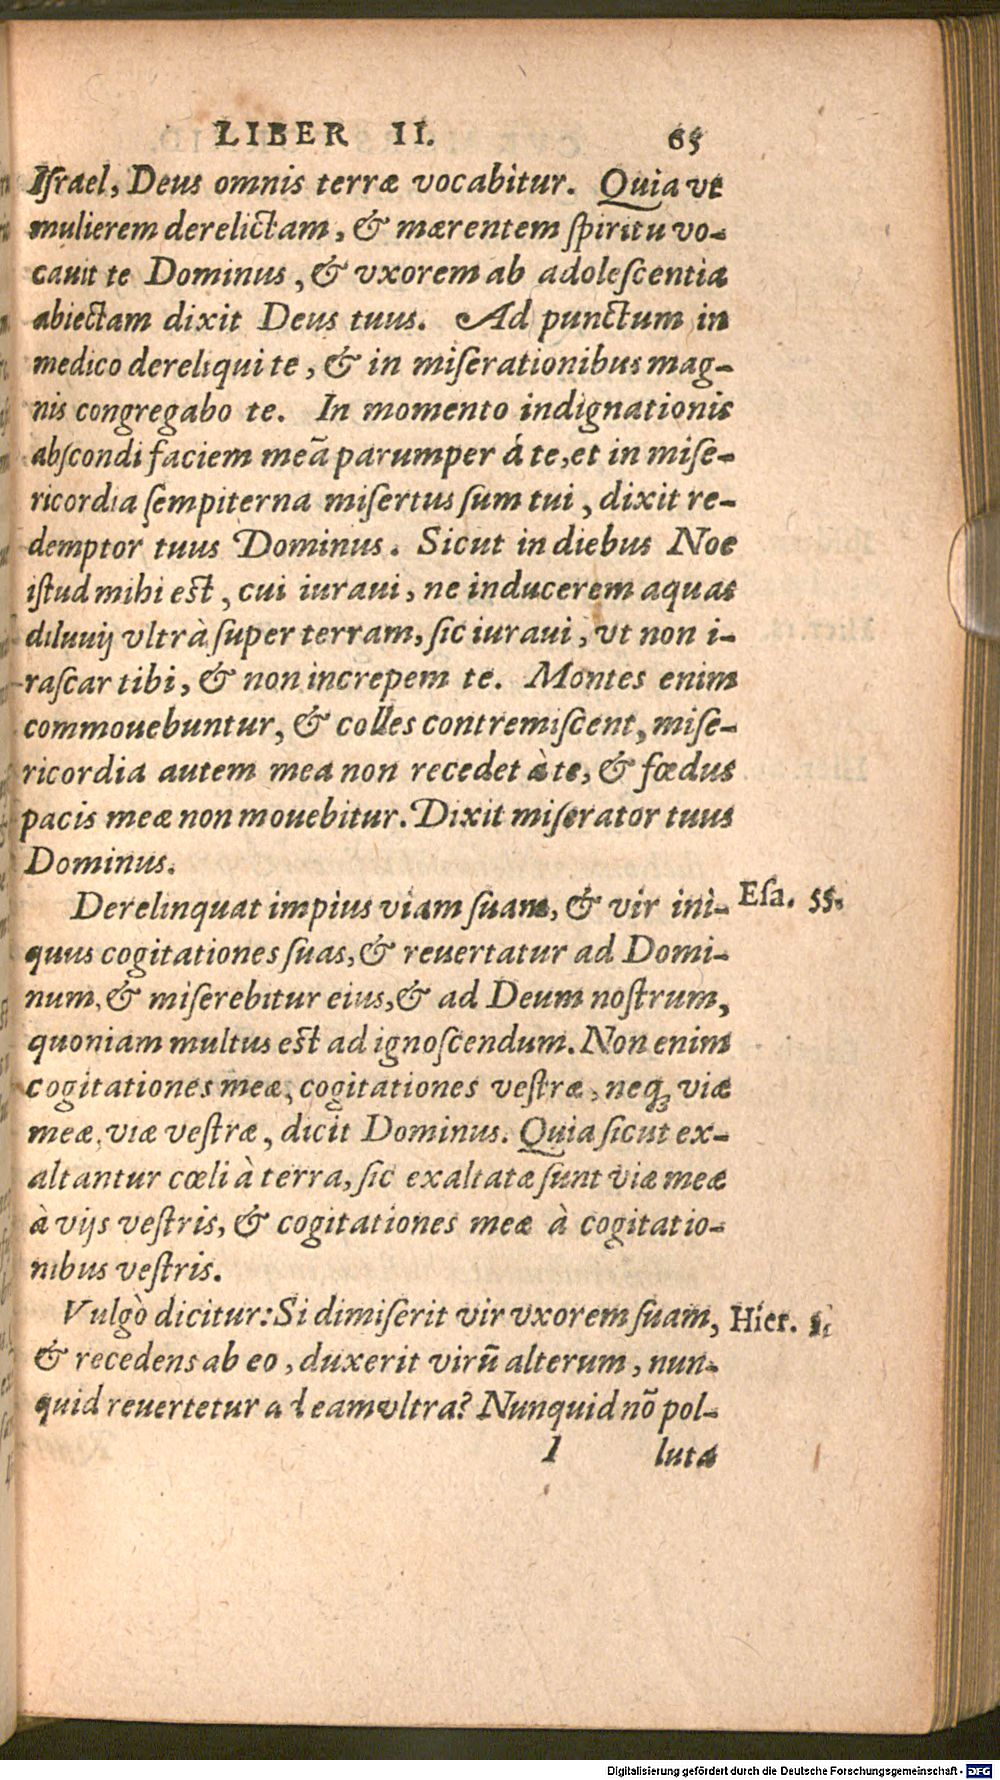 LIBER II. 65
Iſrael, Deus omnis terræ vocabitur. Quia vt
mulierem derelictam, & mærentem ſpiritu vo-
cauit te Dominus, & vxorem ab adoleſcentia
abiectam dixit Deus tuus. Ad punctum in
medico dereliqui te, & in miſerationibus mag-
nis congregabo te. In momento indignationis
abſcondi faciem meã parumper á te, et in miſe-
ricordia ſempiterna miſertus ſum tui, dixit re-
demptor tuus Dominus. Sicut in diebus Noe
iſtud mihi eſt, cui iuraui, ne inducerem aquas
diluuij vltrà ſuper terram, ſic iuraui, vt non i-
raſcar tibi, & non increpem te. Montes enim
commouebuntur, & colles contremiſcent, miſe-
ricordia autem mea non recedet à te, & fœdus
pacis meæ non mouebitur. Dixit miſerator tuus
Dominus.
Derelinquat impius viam ſuam, & vir ini- Eſa. 55.
quus cogitationes ſuas, & reuertatur ad Domi-
num, & miſerebitur eius, & ad Deum noſtrum,
quoniam multus eſt ad ignoſcendum. Non enim
cogitationes meæ, cogitationes veſtræ, neq; viæ
meæ, viæ veſtræ, dicit Dominus. Quia ſicut ex-
altantur cœli à terra, ſic exaltatæ ſunt viæ meæ
à vijs veſtris, & cogitationes meæ à cogitatio-
nibus veſtris.
Vulgò dicitur: Si dimiſerit vir vxorem ſuam, Hier.
& recedens ab eo, duxerit virũ alterum, nun-
quid reuertetur ad eam vltra? Nunquid nõ pol-
I lutæ
Digitalisierung gefördert durch die Deutsche Forschungsgemeinschaft - DFG